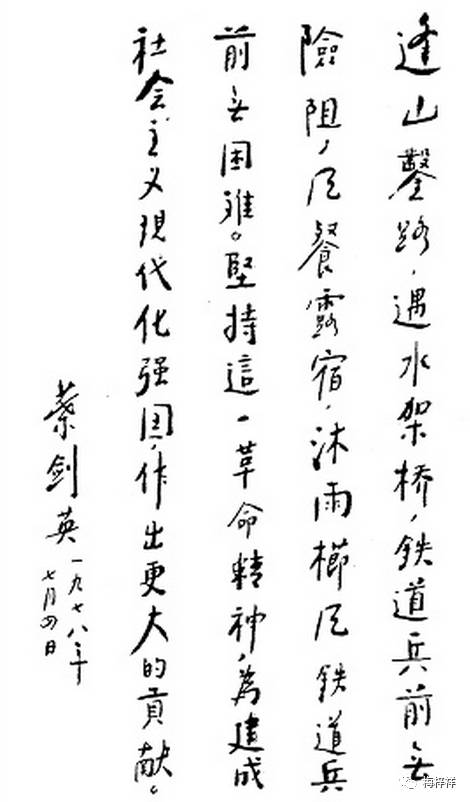 逢山鑿路，遇水架桥，鉄道兵前无
險阻，风餐露宿，沐雨櫛风鉄道兵
前无困难。堅持這一革命精神，為建成
社会主义現代化强国，作出更大的貢献。
葉剑英
一九七八年
七月四日
梅梓祥